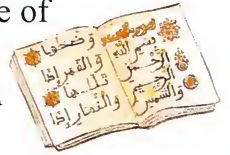 e of
بسم الله
الرحمن
الرحيم
والشمس
وضحها
والقمر إذا
تلها
والنهار إذا